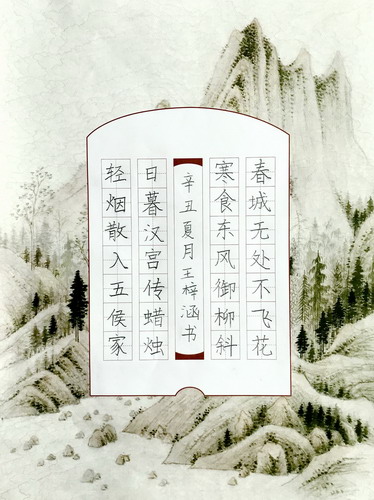 春城无处不飞花
寒食东风御柳斜
日暮汉宫传蜡烛
轻烟散入五侯家
辛丑夏月王梓涵书